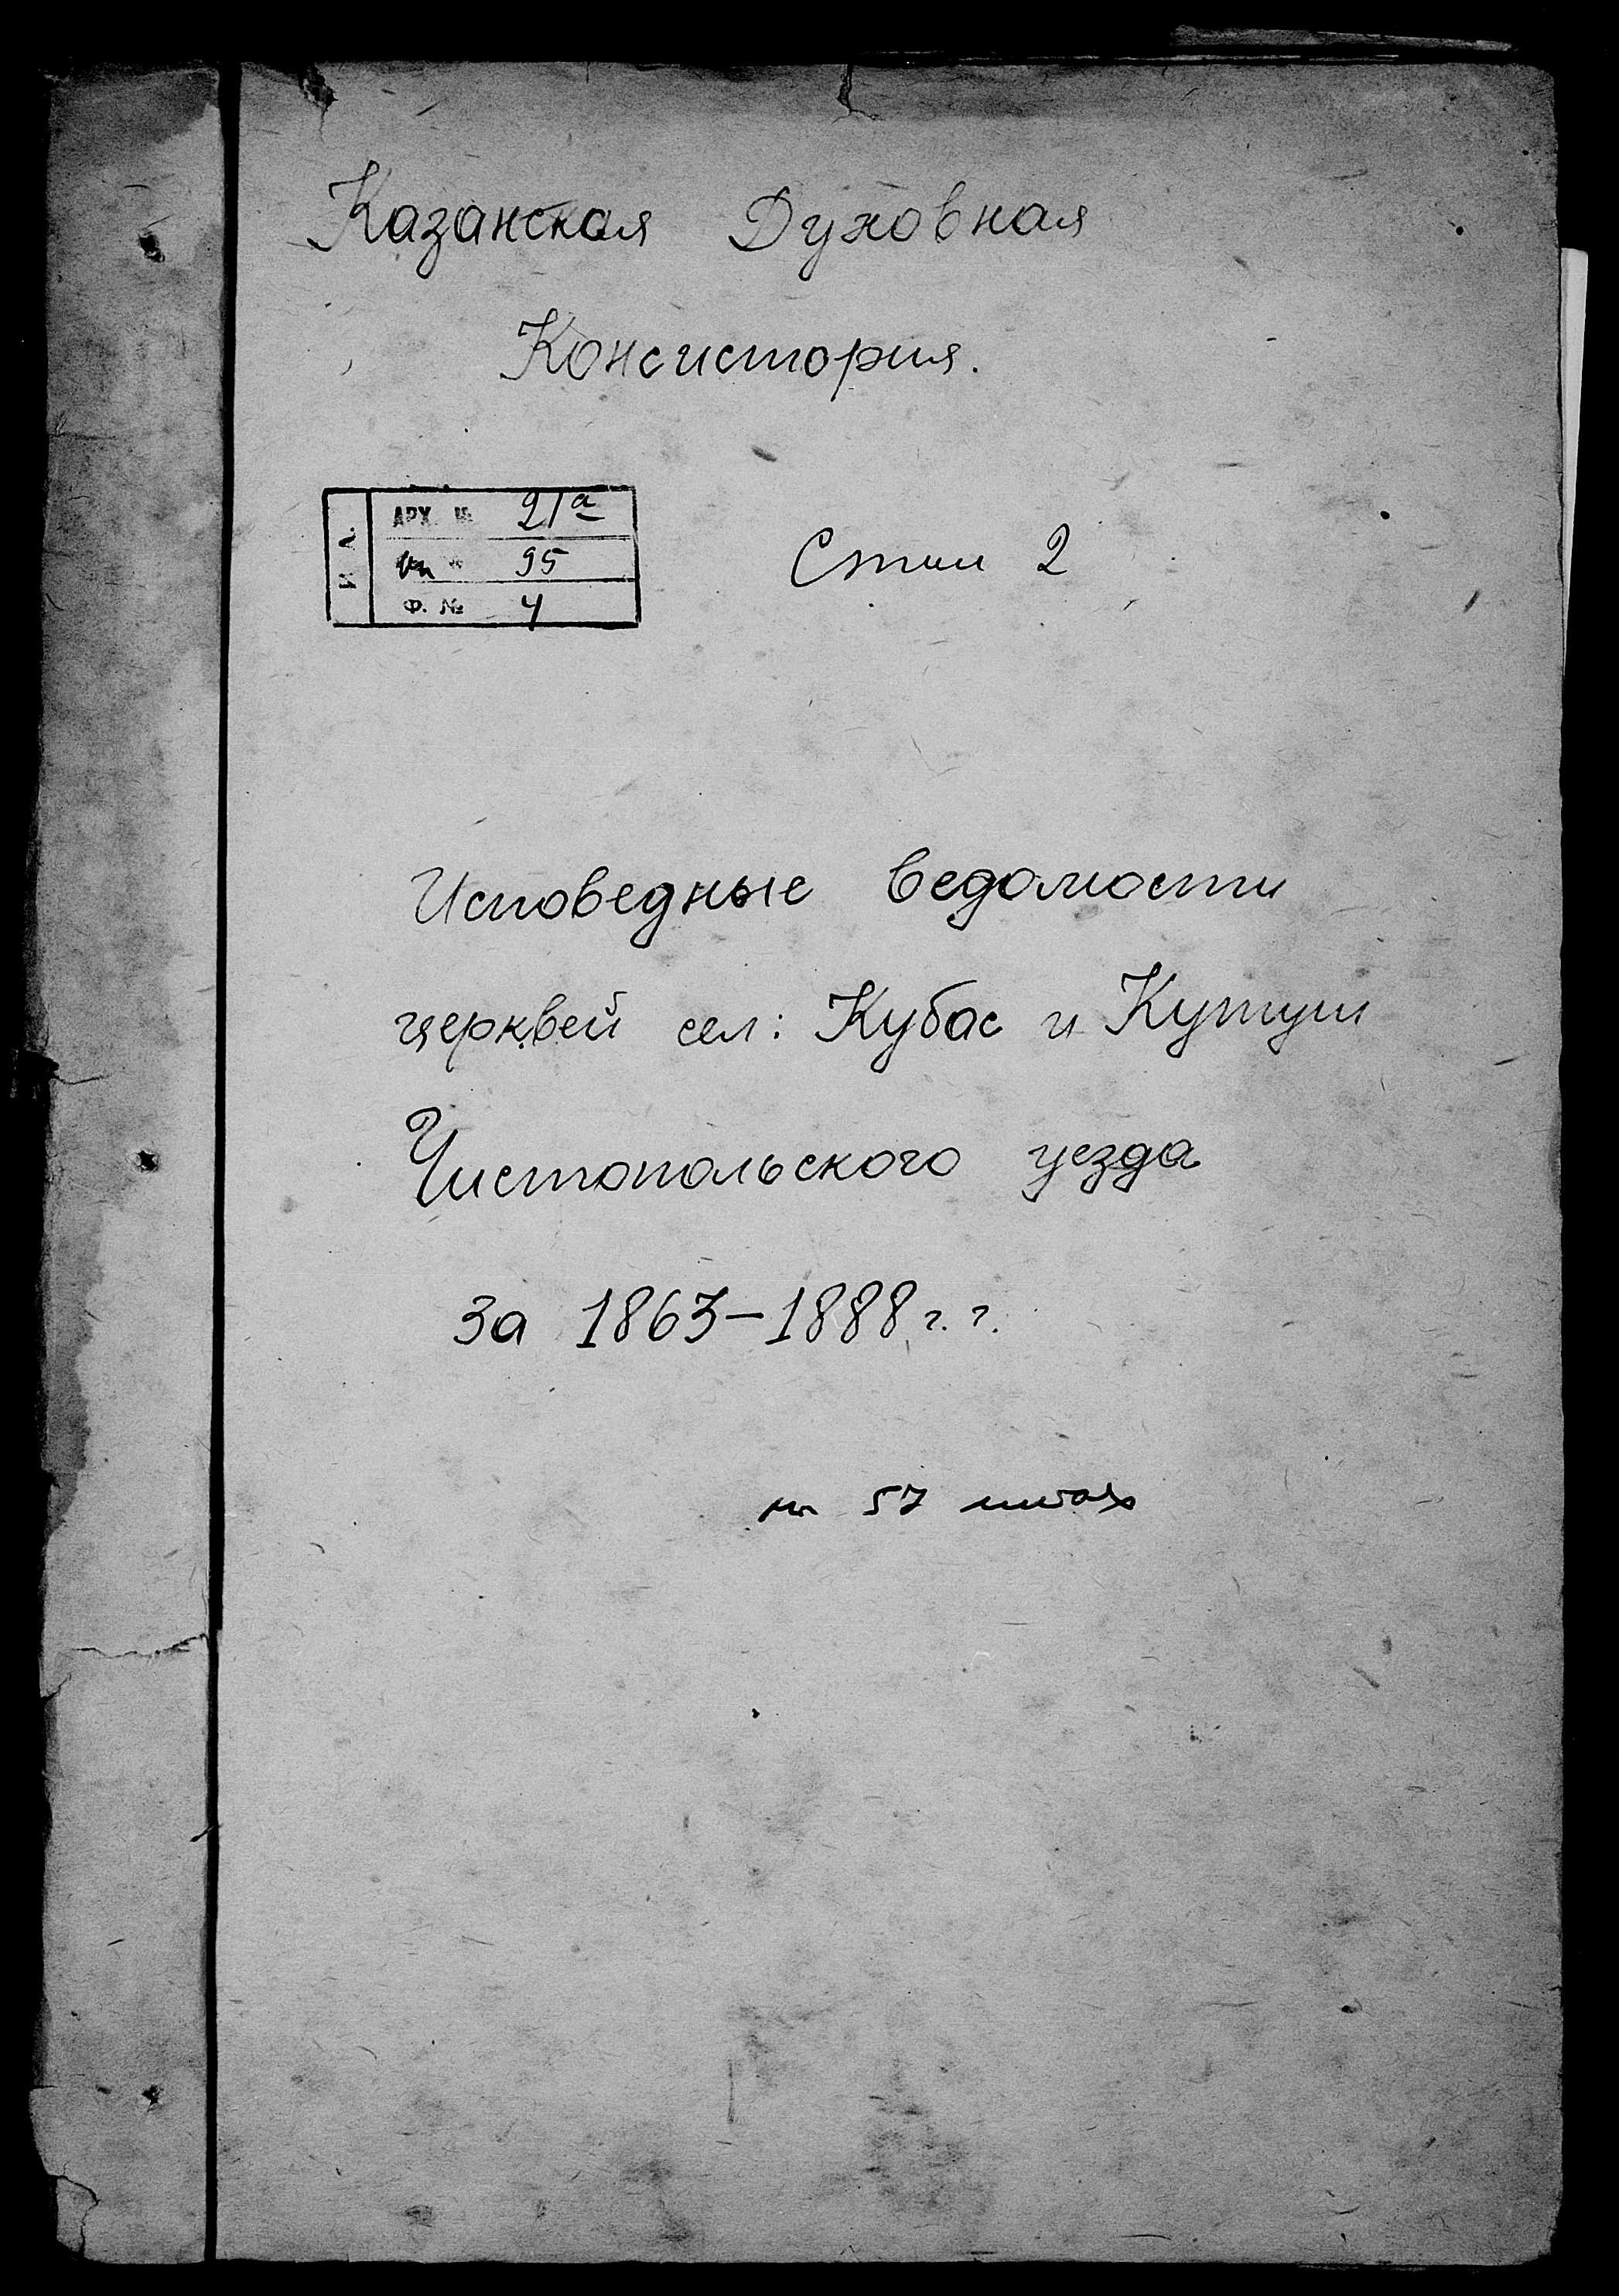 Казанская Духовная
Консистория.
АРХ. № 21а
оп 95
Ф. № 4
Стол 2
Исповедные ведомости
церквей сел: Кубас и Кутуш
Чистопольского уезда
за 1863-1888 г. г.
на 57 листах